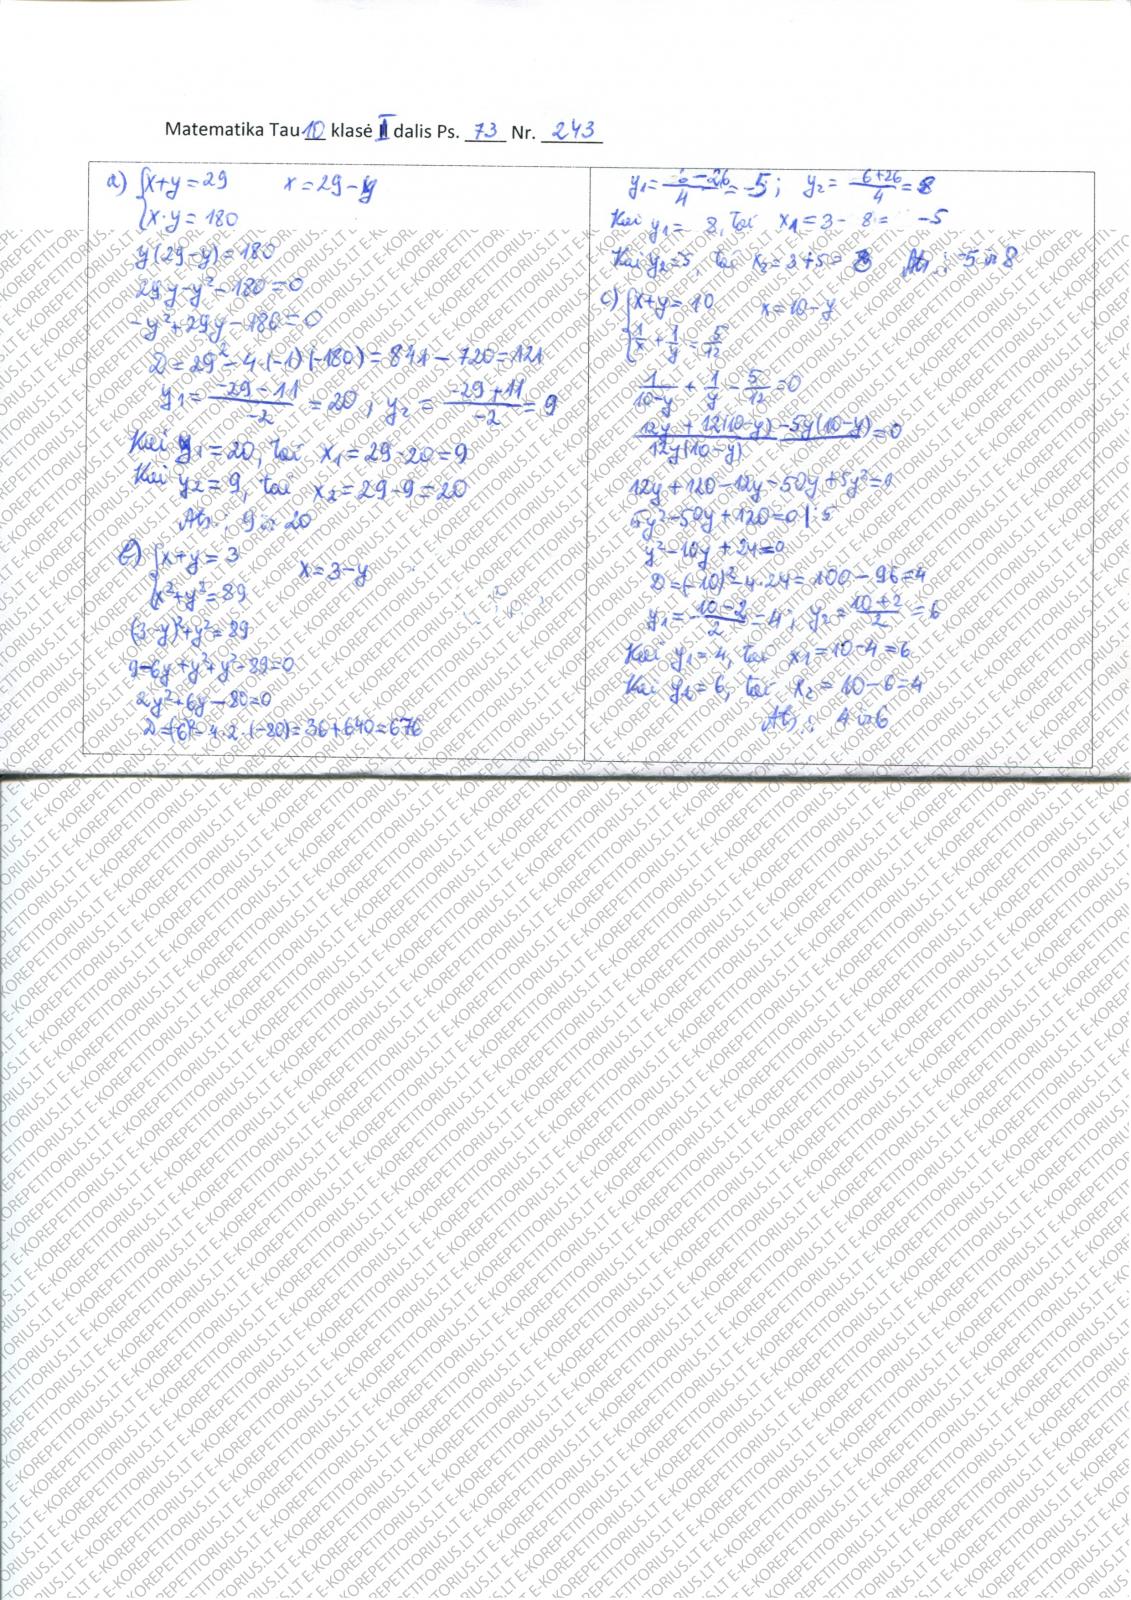 Matematika Tau 10 klasė II dalis Ps. 73 Nr. 243
a) { x+y=29 x=29-y
x·y=180
y(29-y)=180
29y-y²-180=0
-y²+29y-180=0
D=29²-4·(-1)·(-180)=841-720=121
y₁=(-29-11)/-2=20, y₂=(-29+11)/-2=9
Kai y₁=20, tai x₁=29-20=9
Kai y₂=9, tai x₂=29-9=20
Ats.: 9 ir 20
b) { x+y=3 x=3-y
x²+y²=89
(3-y)²+y²=89
9-6y+y²+y²-89=0
2y²+6y-80=0
D=(6)²-4·2·(-80)=36+640=676
y₁=(6-26)/4=-5; y₂=(6+26)/4=8
Kai y₁=8, tai x₁=3-8=-5
Kai y₂=5, tai x₂=3+5=8 Ats.: -5 ir 8
c) { x+y=10 x=10-y
1/x+1/y=5/12
1/(10-y)+1/y-5/12=0
(12y+12(10-y)-5y(10-y))/12y(10-y)=0
12y+120-12y-50y+5y²=0
5y²-50y+120=0 |:5
y²-10y+24=0
D=(-10)²-4·24=100-96=4
y₁=(10-2)/2=4; y₂=(10+2)/2=6
Kai y₁=4, tai x₁=10-4=6
Kai y₂=6, tai x₂=10-6=4
Ats.: 4 ir 6
E-KOREPETITORIUS.LT